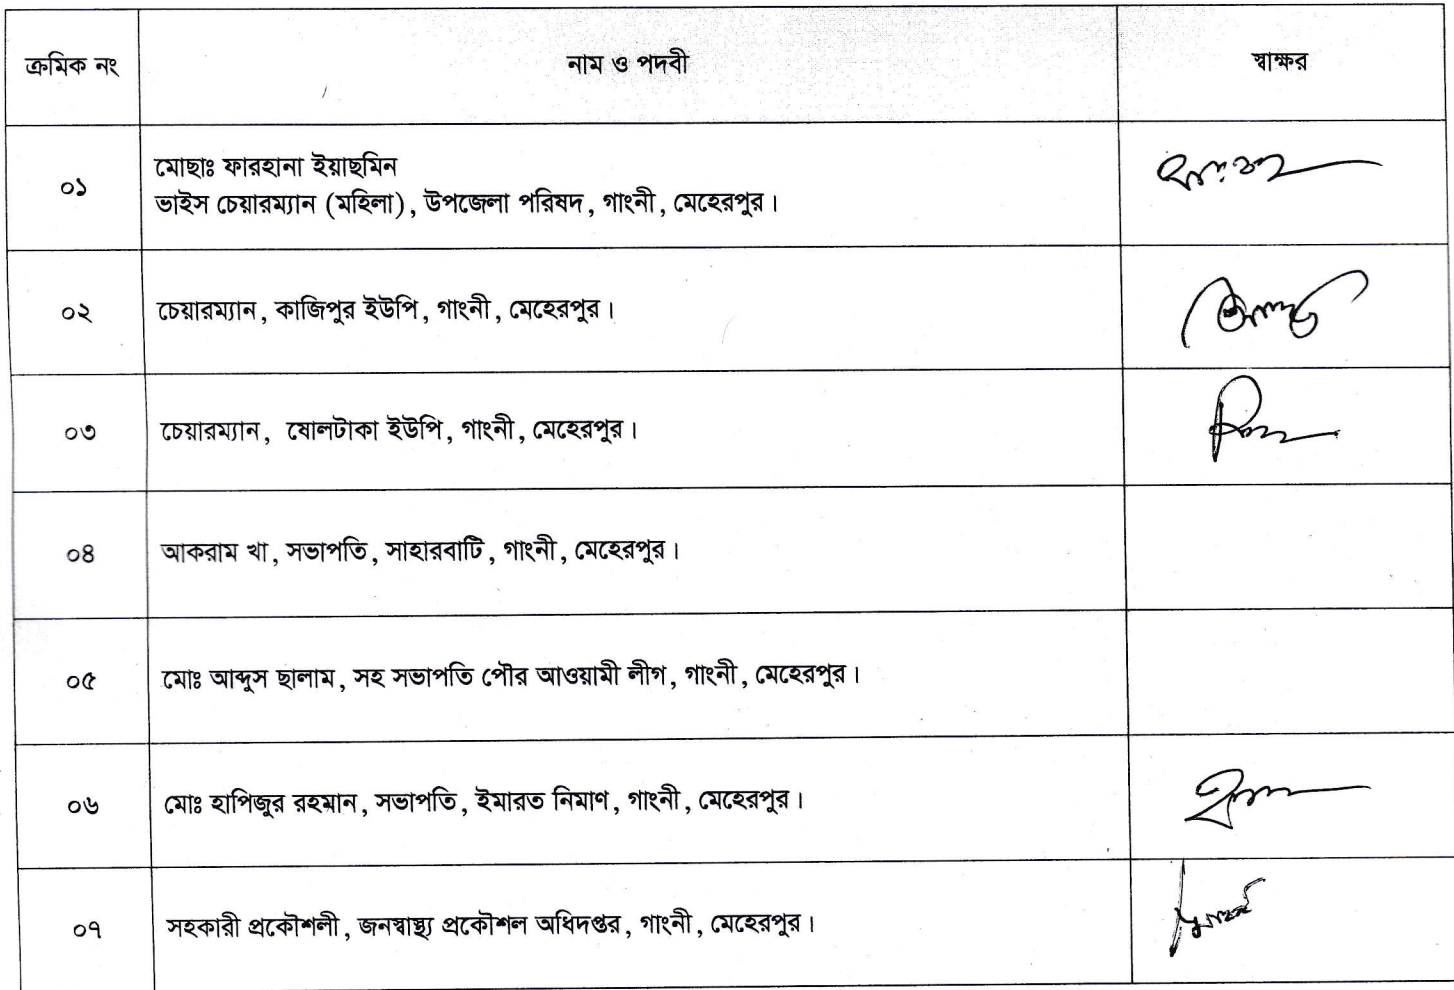 ক্রমিক নং নাম ও পদবী স্বাক্ষর
০১ মোছাঃ ফারহানা ইয়াছমিন
ভাইস চেয়ারম্যান (মহিলা), উপজেলা পরিষদ, গাংনী, মেহেরপুর।
০২ চেয়ারম্যান, কাজিপুর ইউপি, গাংনী, মেহেরপুর।
০৩ চেয়ারম্যান, ষোলটাকা ইউপি, গাংনী, মেহেরপুর।
০৪ আকরাম খা, সভাপতি, সাহারবাটি, গাংনী, মেহেরপুর।
০৫ মোঃ আব্দুস ছালাম, সহ সভাপতি পৌর আওয়ামী লীগ, গাংনী, মেহেরপুর।
০৬ মোঃ হাপিজুর রহমান, সভাপতি, ইমারত নিমাণ, গাংনী, মেহেরপুর।
০৭ সহকারী প্রকৌশলী, জনস্বাস্থ্য প্রকৌশল অধিদপ্তর, গাংনী, মেহেরপুর।